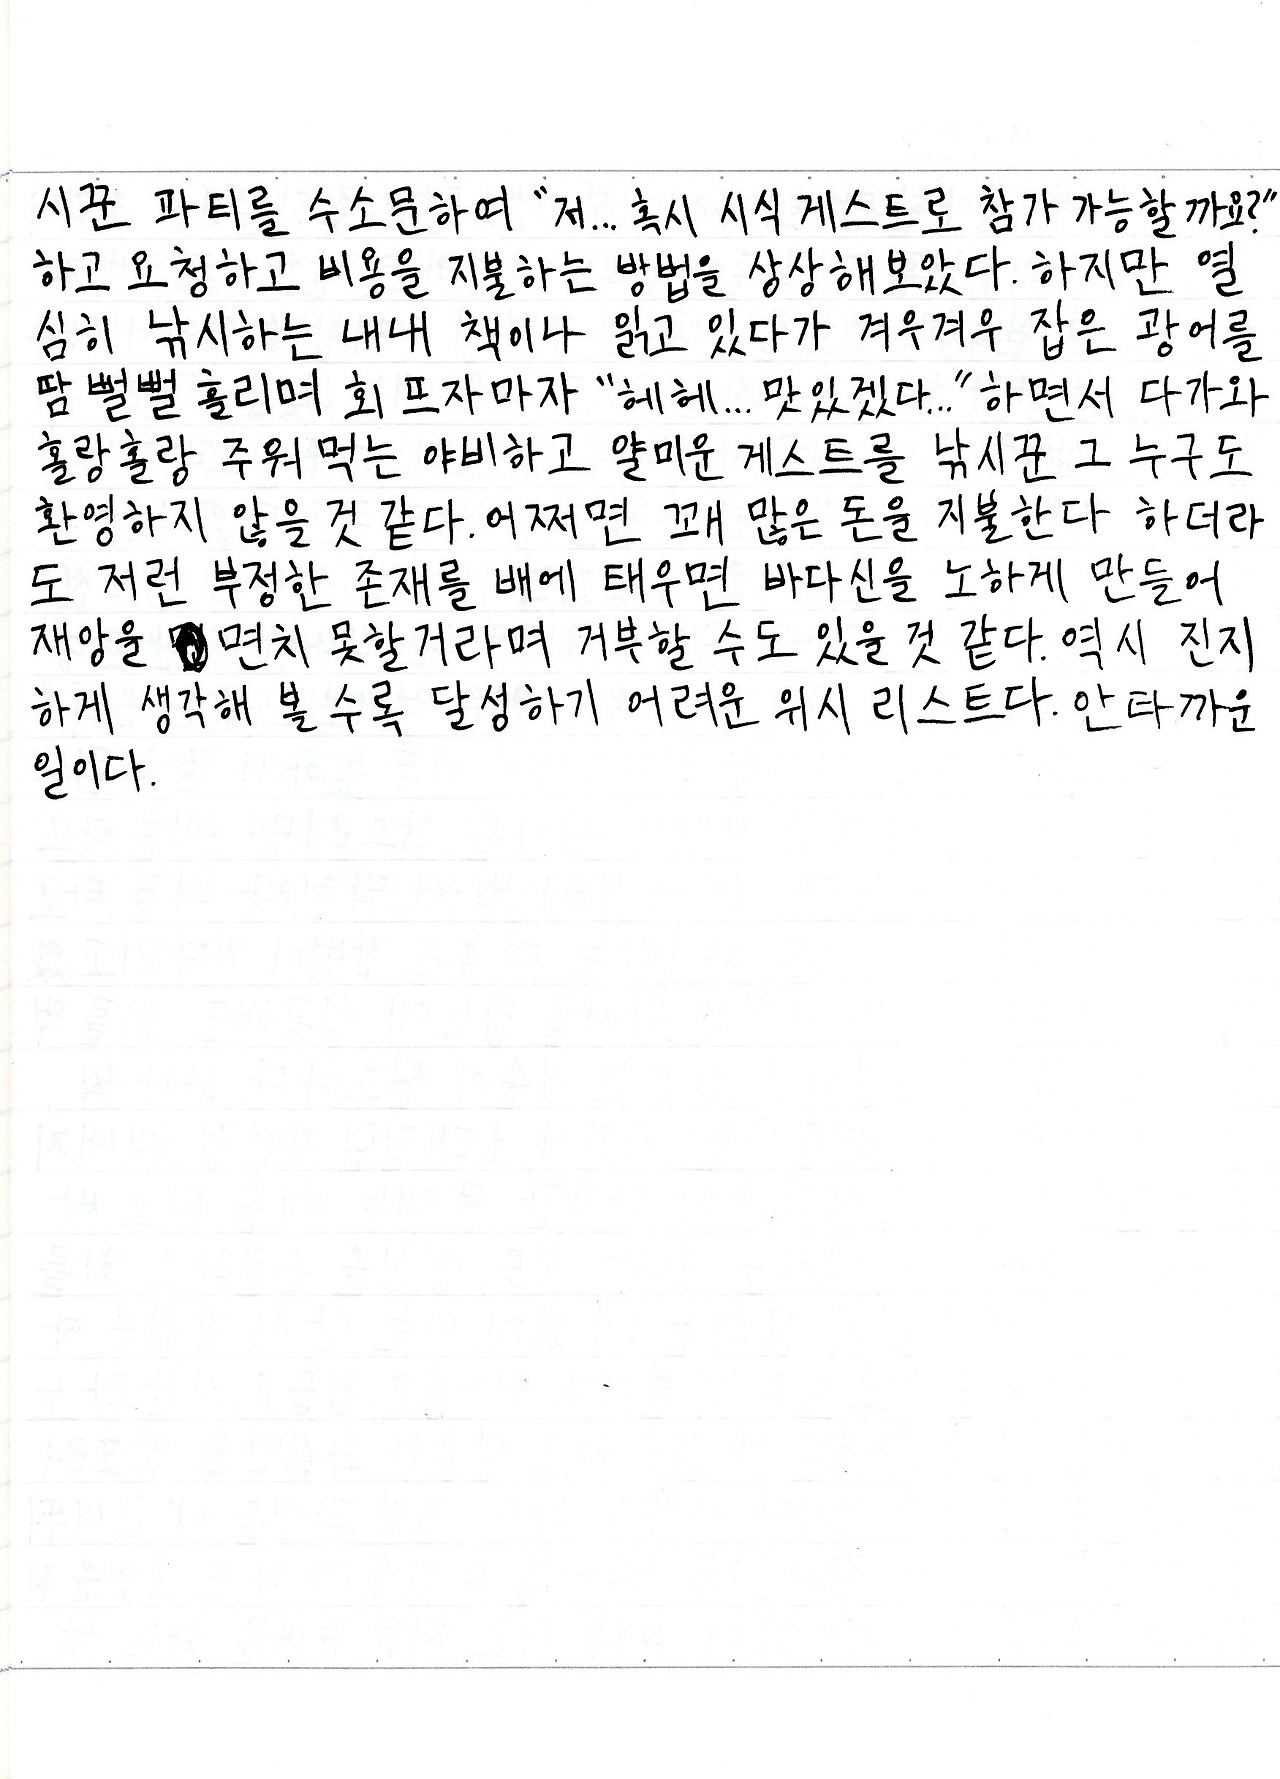 시꾼 파티를 수소문하여 “저... 혹시 시식 게스트로 참가 가능할까요?”
하고 요청하고 비용을 지불하는 방법을 상상해보았다. 하지만 열
심히 낚시하는 내내 책이나 읽고 있다가 겨우겨우 잡은 광어를
땀 뻘뻘 흘리며 회 뜨자마자 “헤헤... 맛있겠다...” 하면서 다가와
홀랑홀랑 주워 먹는 야비하고 얄미운 게스트를 낚시꾼 그 누구도
환영하지 않을 것 같다. 어쩌면 꽤 많은 돈을 지불한다 하더라
도 저런 부정한 존재를 배에 태우면 바다신을 노하게 만들어
재앙을 면치 못할거라며 거부할 수도 있을 것 같다. 역시 진지
하게 생각해 볼 수록 달성하기 어려운 위시 리스트다. 안타까운
일이다.